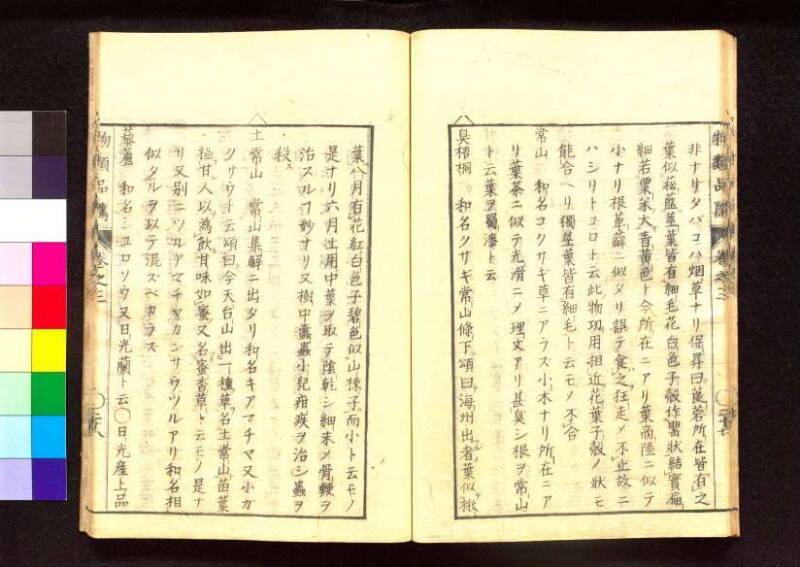 非ナリタバコハ烟草ナリ保昇曰莨菪所在皆有之
葉似菘藍莖葉皆有細毛花白色子殻作罌状結實扁
細若粟米大青黄色ト今所在ニアリ葉商陸ニ似テ
小ナリ根萆薢ニ似タリ誤テ食之狂走メ不止故ニ
ハシリトコロト云此物功用相近花葉子殻ノ状モ
能合ヘリ獨莖葉皆有細毛ト云モノ不合
常山 和名コクサギ草ニアラズ小木ナリ所在ニア
リ葉茶ニ似テ光滑ニメ理文アリ甚臭シ根ヲ常山
ト云葉ヲ蜀漆ト云
臭梧桐 和名クサギ常山條下頌曰海州出者葉似楸
物類品隲 巻之三
葉八月有花紅白色子碧色似山楝子而小ト云モノ
是ナリ六月土用中葉ヲ取テ陰乾シ細末メ骨鯁ヲ
治スルヿ妙ナリ又樹中蠹蟲小児疳疾ヲ治シ蟲ヲ
殺ス
土常山 常山集解ニ出タリ和名キアマチヤ又小ガ
クサウト云頌曰今天台山出一種草名土常山苗葉
極甘人以為飲甘味如蜜又名蜜香草ト云モノ是ナ
リ又別ニツルアマチヤカンサウツルアリ和名相
似タルヲ以テ混スベカラズ
藜蘆 和名シユロソウ又日光蘭ト云〇日光産上品
物類品隲 巻之三